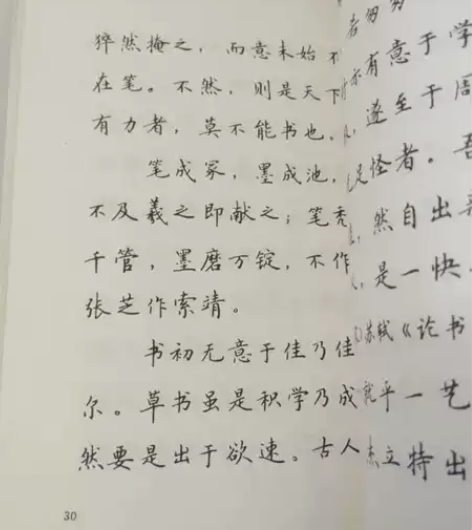 猝然掩之，而意未始不
在笔。不然，则是天下
有力者，莫不能书也。
笔成冢，墨成池，
不及羲之即献之；笔秃
千管，墨磨万锭，不作
张芝作索靖。
书初无意于佳乃佳
尔。草书虽是积学乃成
然要是出于欲速。古人
30
者匆匆
亦有意于学
遂至于周
怪者。吾
然自出
是一快
苏轼《论书
乎一艺
立特出